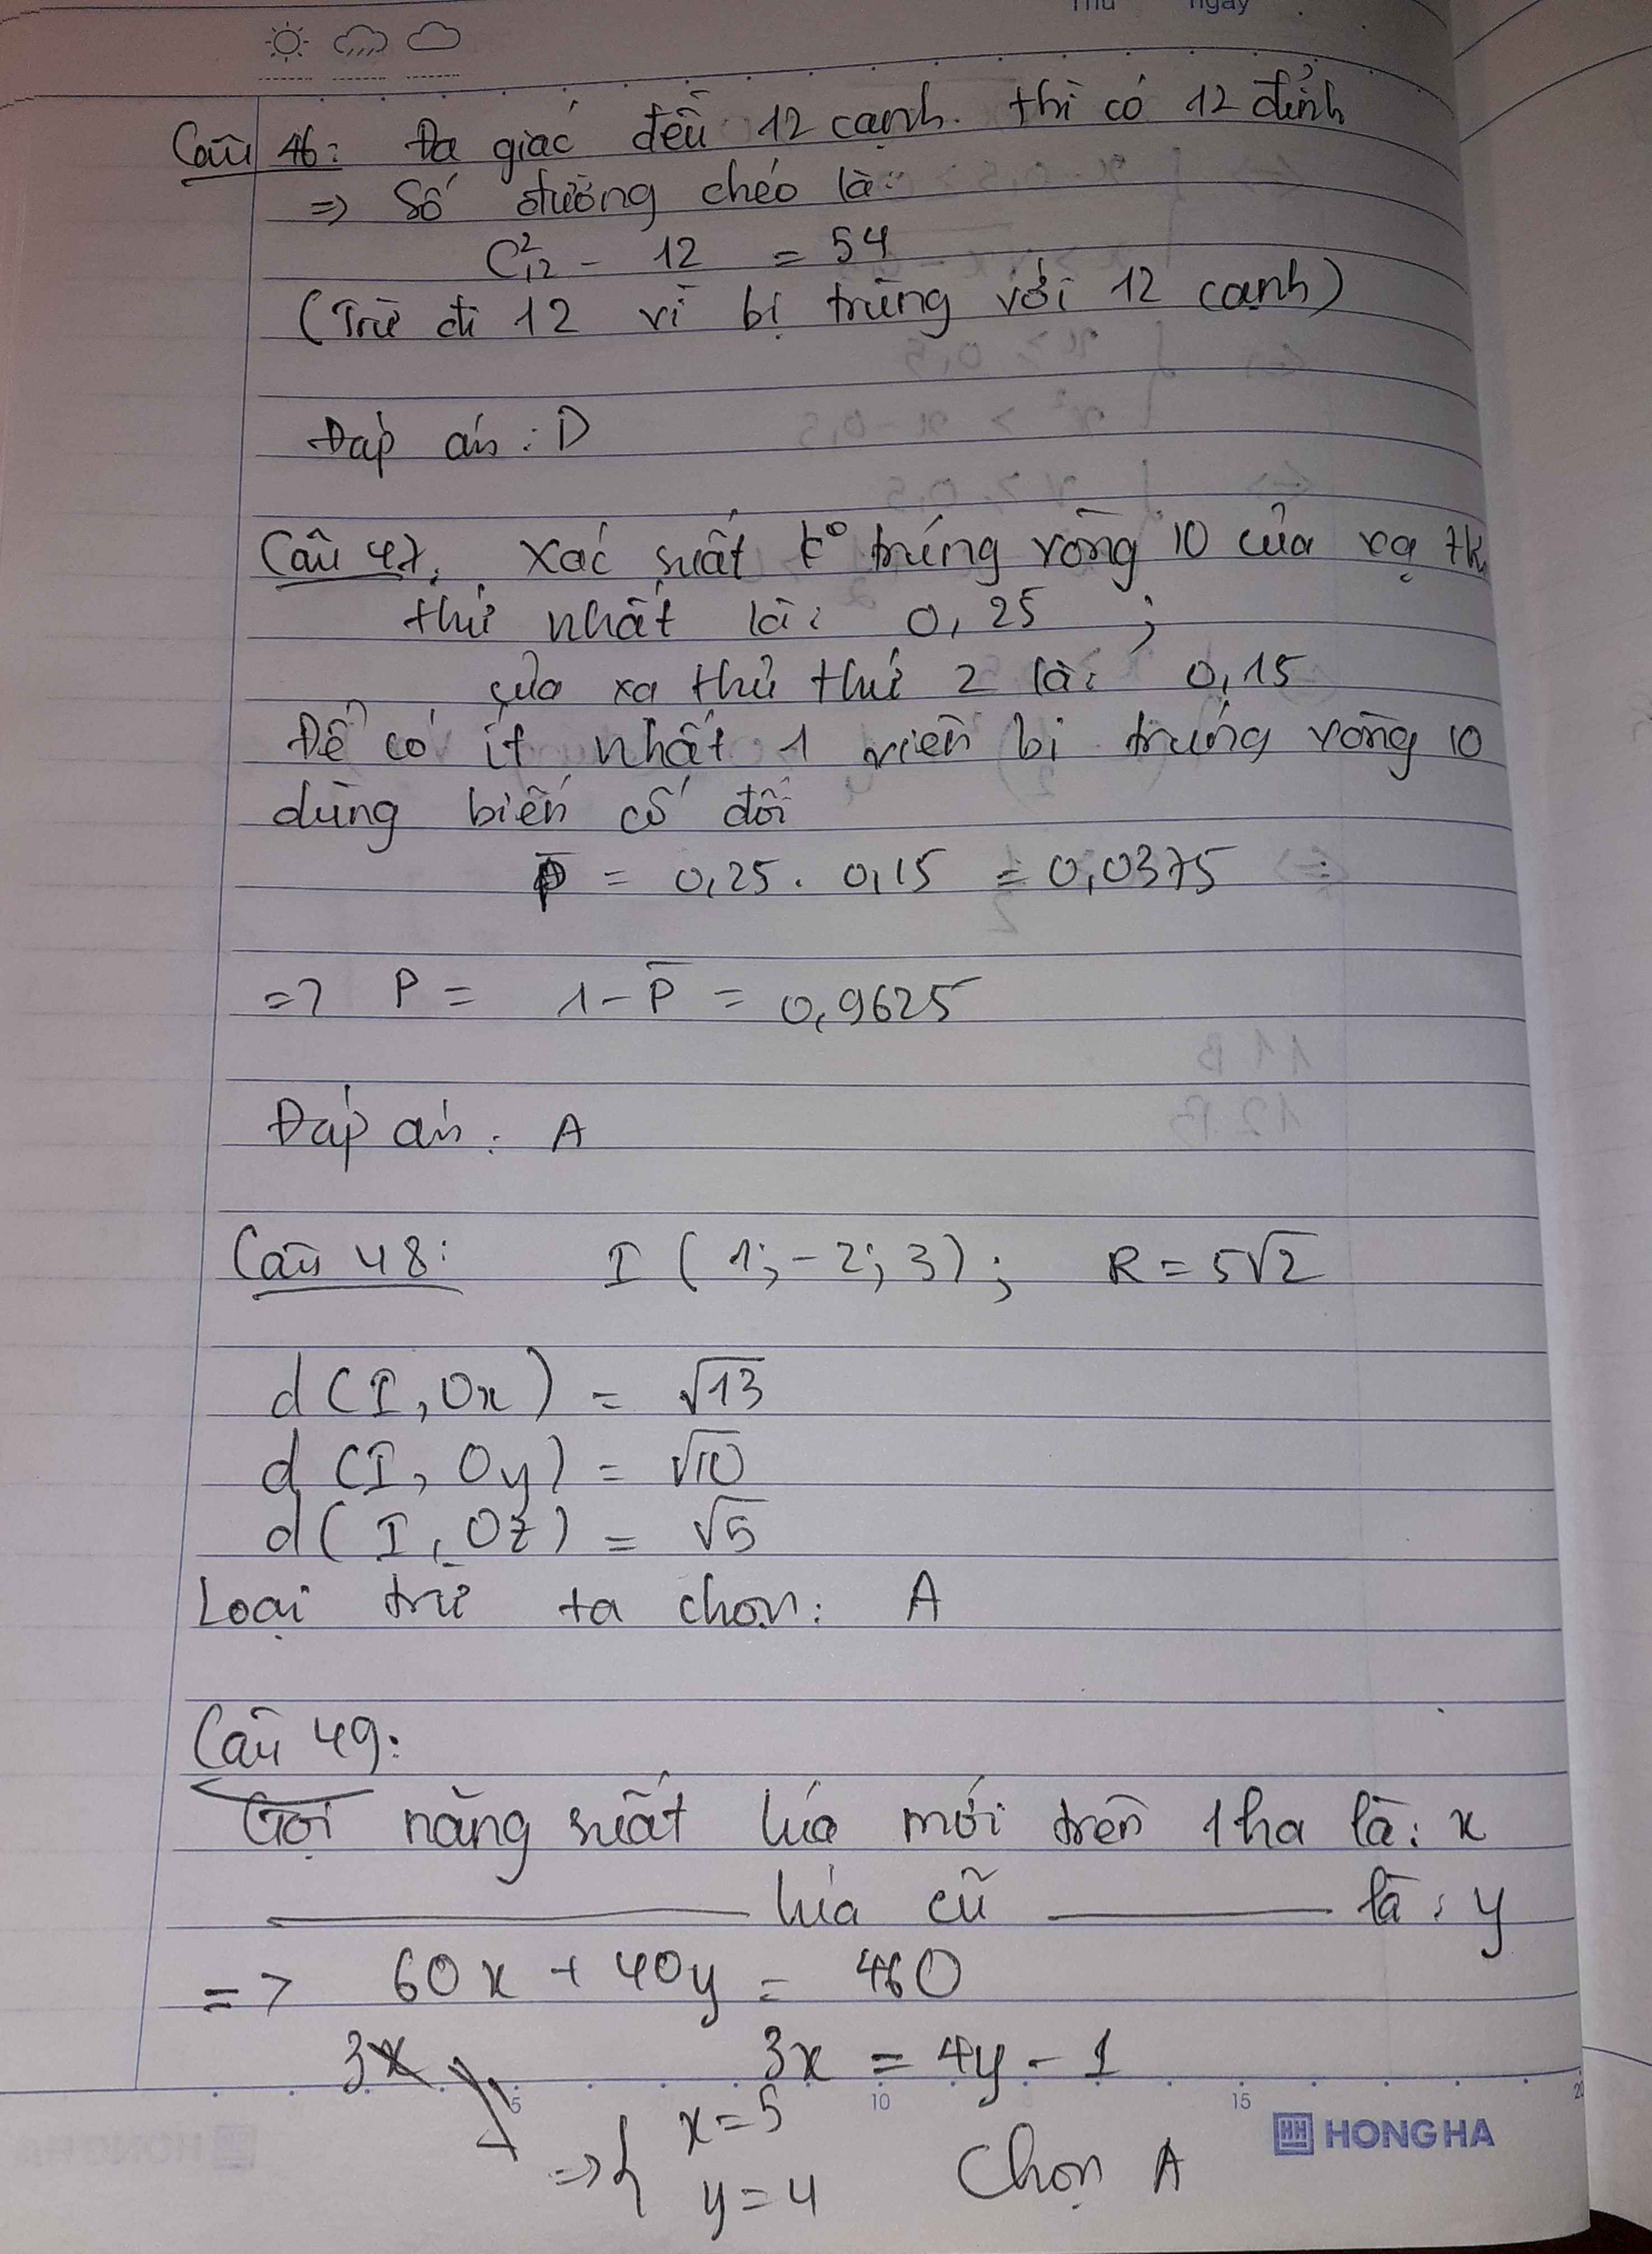 Thứ ngày
Câu 46: Đa giác đều 12 cạnh. thì có 12 đỉnh
=> Số đường chéo là:
C²₁₂ - 12 = 54
(Trừ đi 12 vì bị trùng với 12 cạnh)
Đáp án: D
Câu 47. Xác suất k° trúng vòng 10 của xạ th
thứ nhất là: 0,25 ;
của xạ thủ thứ 2 là: 0,15
Để có ít nhất 1 viên bi trúng vòng 10
dùng biến cố đối
P̄ = 0,25 . 0,15 = 0,0375
=> P = 1 - P̄ = 0,9625
Đáp án: A
Câu 48: I (1; -2; 3); R = 5√2
d(I, Ox) = √13
d(I, Oy) = √10
d(I, Oz) = √5
Loại trừ ta chọn: A
Câu 49:
Gọi năng suất lúa mới trên 1ha là: x
lúa cũ là: y
=> 60x + 40y = 460
3x 3x = 4y - 1
5 10 15 20
=> { x = 5
y = 4 Chọn A
HH HONG HA